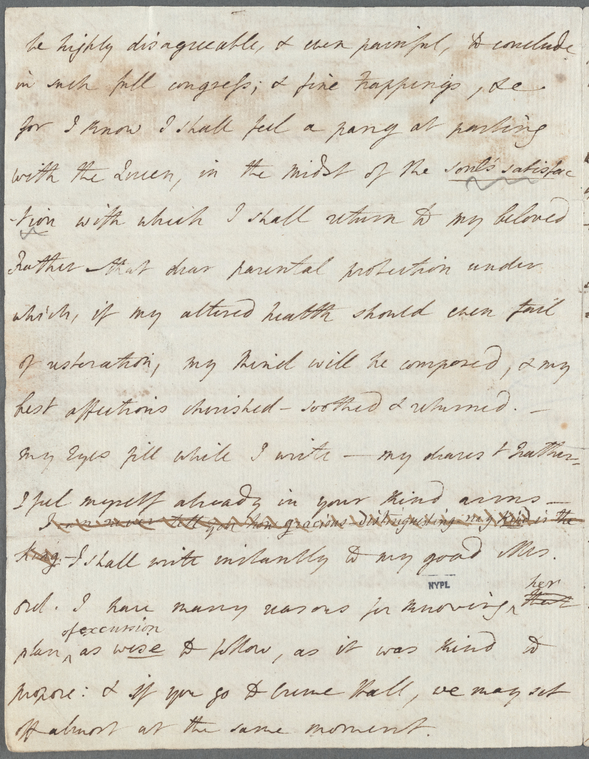 be highly disagreeable, & even painful, to conclude
in such full congress; & fine trappings, &c
for I know I shall feel a pang at parting
with the Queen, in the midst of the soul's satisfac
-tion with which I shall return to my beloved
Father that dear parental protection under
which, if my altered health should even fail
of restoration, my Mind will be composed, & my
best affections cherished – soothed & returned. –
my Eyes fill while I write – my dearest Father –
I feel myself already in your kind arms –
I never tell you how gracious distinguishing my is the
King I shall write instantly to my good Mrs.
Ord. I have many reasons for knowing that her
of excursion
plan, as wise to follow, as it was kind to
propose: & if you go to Crewe Hall, we may set
off almost at the same moment.
NYPL